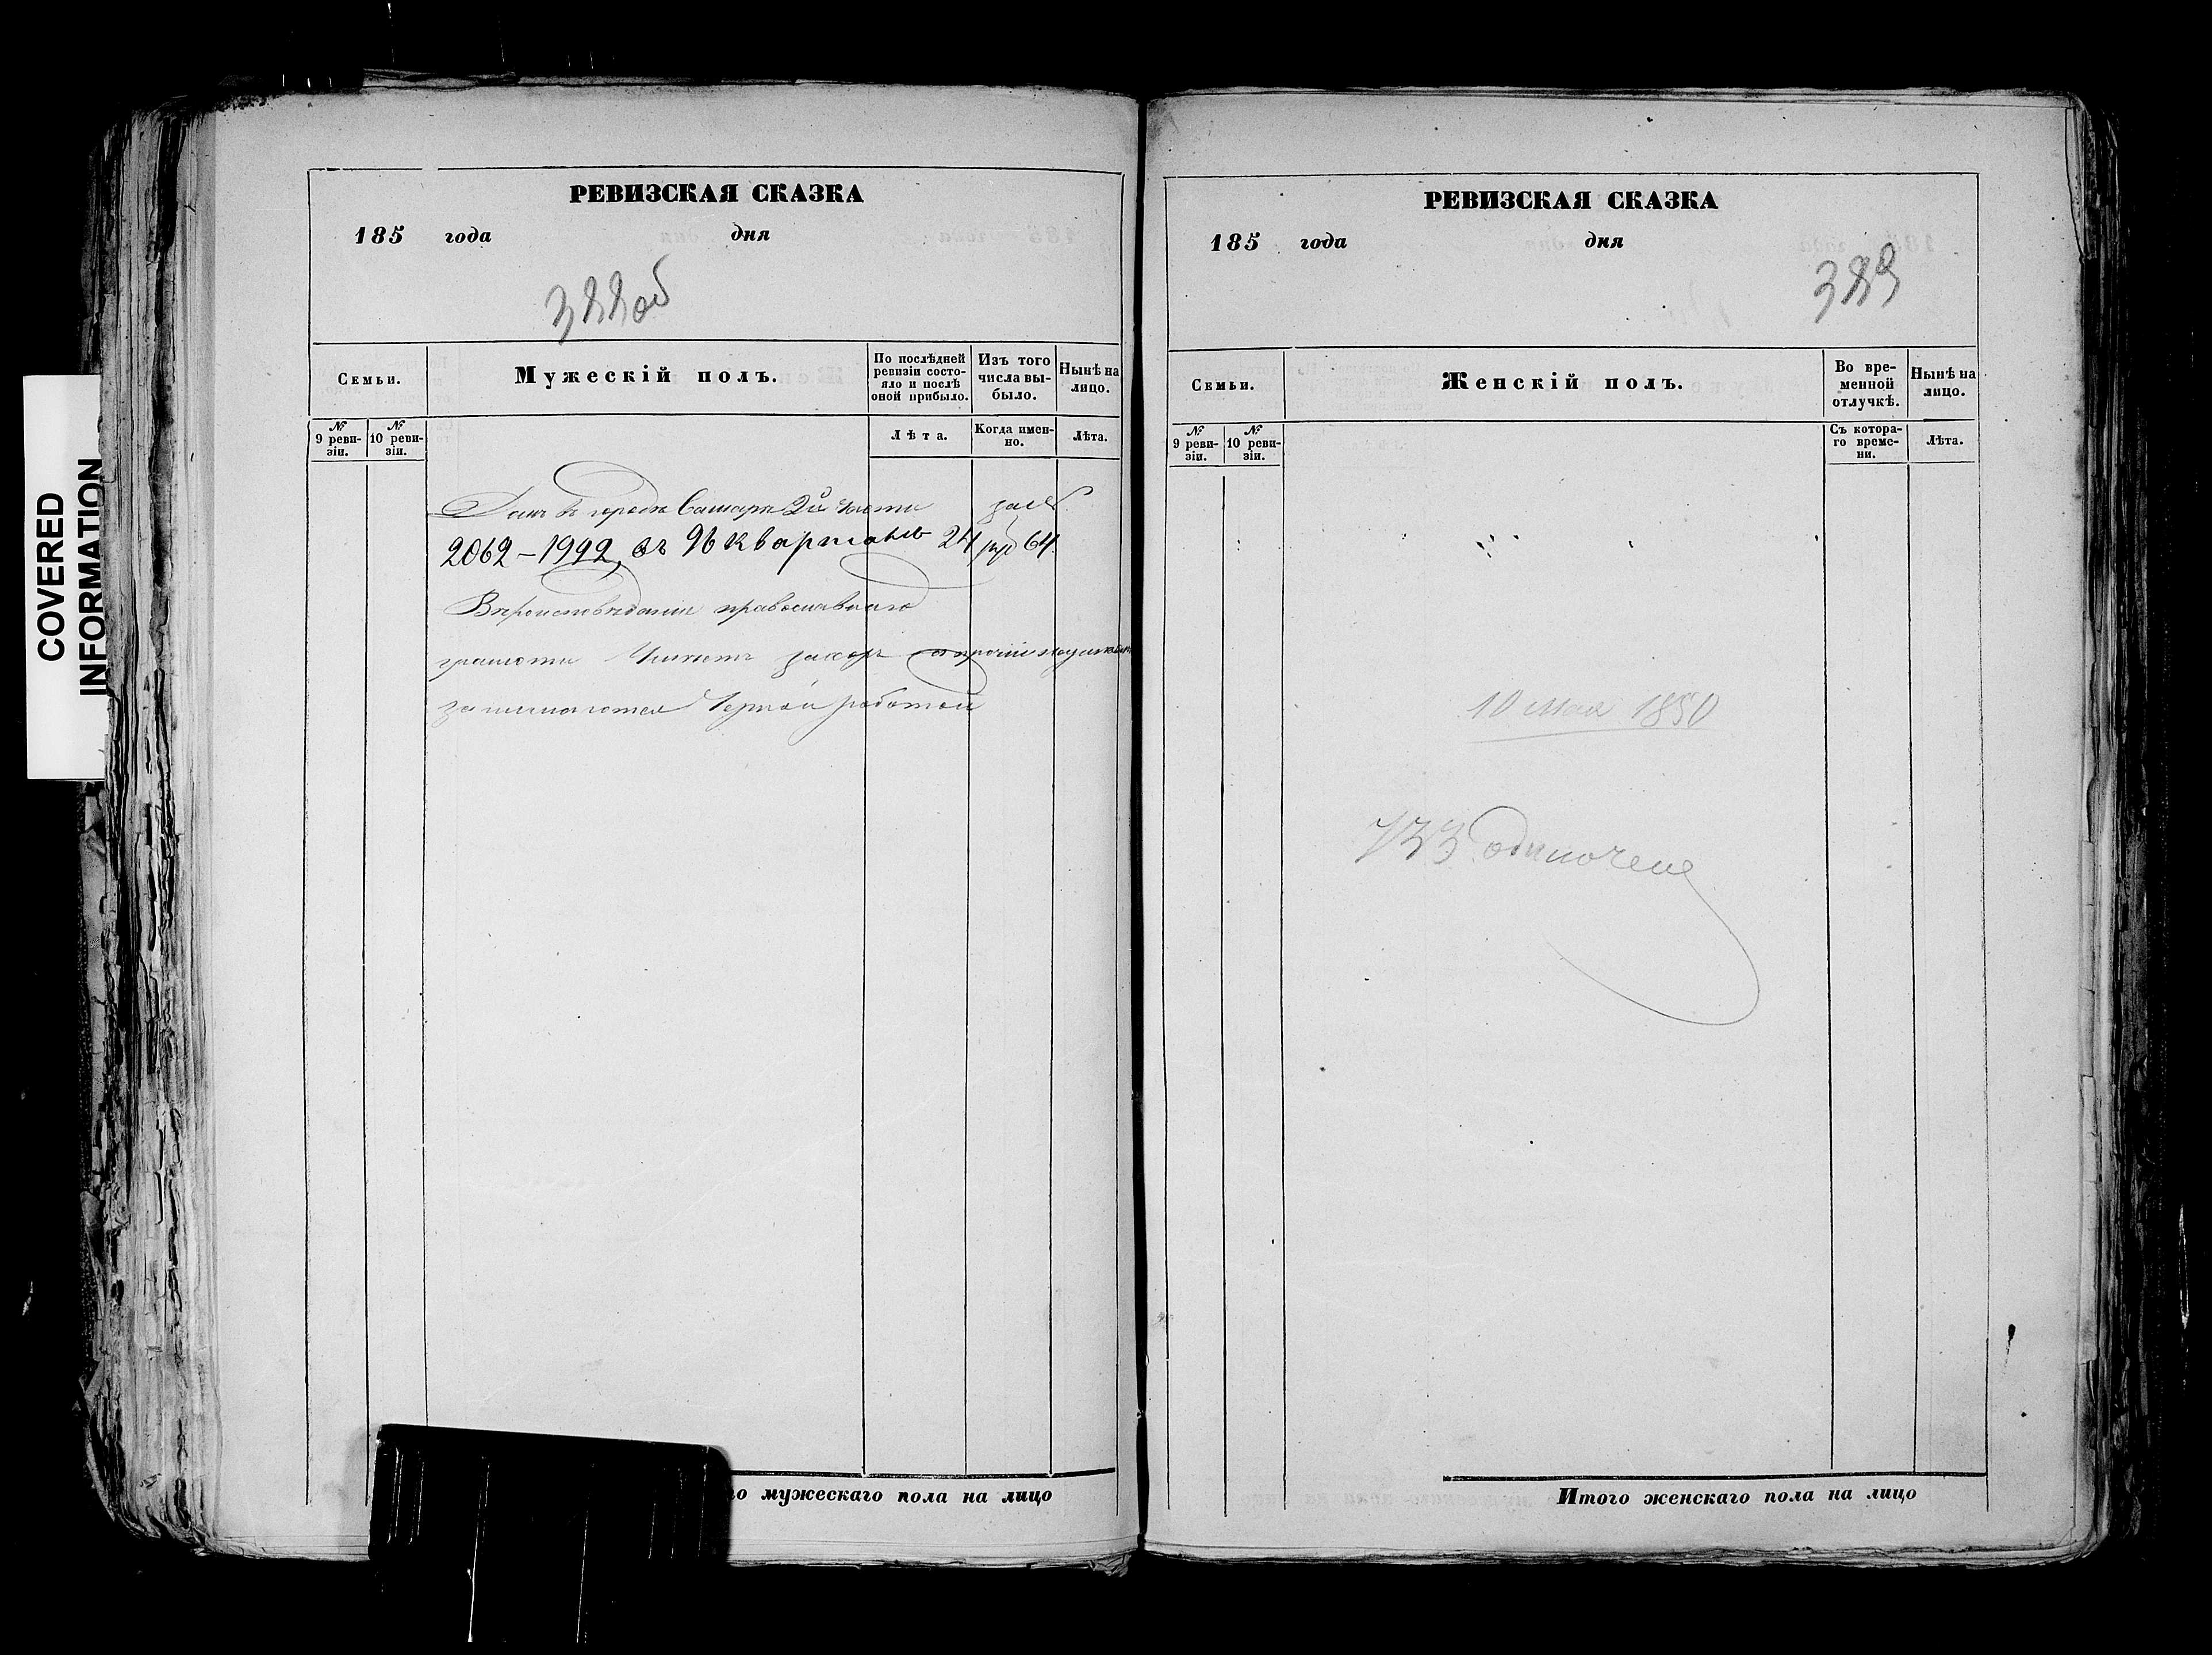 COVERED
INFORMATION
РЕВИЗСКАЯ СКАЗКА
185 года дня
388об
Семьи.
Мужескій полъ.
По послѣдней ревизіи состояло и послѣ оной прибыло.
Изъ того числа выбыло.
Нынѣ на лицо.
№ 9 ревизіи.
№ 10 ревизіи.
Лѣта.
Когда именно.
Лѣта.
Домъ въ городѣ Самарѣ 2й части
2062-1992, въ 96 кварталѣ 24 руб 64
Вѣроисповѣданія православнаго
грамоти
занимаются Черной работой
го мужескаго пола на лицо
РЕВИЗСКАЯ СКАЗКА
185 года дня
389
Семьи.
Женскій полъ.
Во временной отлучкѣ.
Нынѣ на лицо.
№ 9 ревизіи.
№ 10 ревизіи.
Съ котораго времени.
Лѣта.
10 мая 1850
733
Итого женскаго пола на лицо